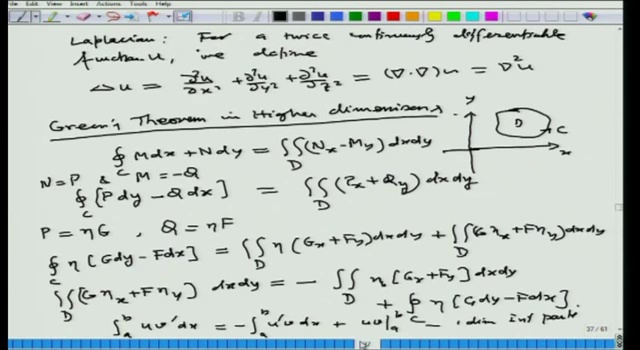 File Edit View Insert Actions Tools Help
Laplacian: For a twice continuously differentiable
function u, we define
Δu = ∂²u/∂x² + ∂²u/∂y² + ∂²u/∂z² = (∇·∇)u = ∇²u
Green's Theorem in Higher dimensions
y
D
C
x
∮_C Mdx + Ndy = ∬_D (N_x - M_y) dxdy
N = P & M = -Q
∮_C [Pdy - Qdx] = ∬_D (P_x + Q_y) dxdy
P = ηG , Q = ηF
∮_C η[Gdy - Fdx] = ∬_D η(G_x + F_y)dxdy + ∬_D (Gη_x + Fη_y)dxdy
∬_D (Gη_x + Fη_y) dxdy = - ∬_D η[G_x + F_y]dxdy
+ ∮_C η[Gdy - Fdx].
∫_a^b uv'dx = -∫_a^b u'v dx + uv|_a^b - 1 dim int parts
37 / 61